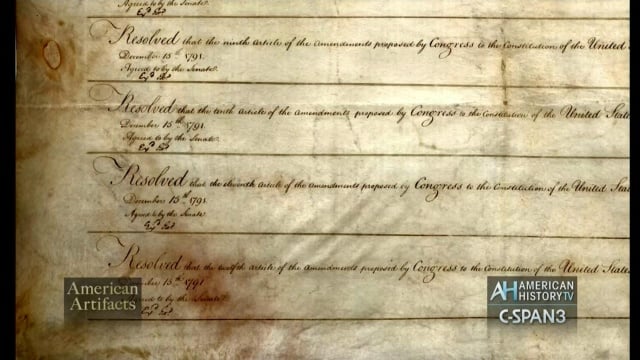 Agreed to by the Senate
Resolved that the ninth Article of the Amendments proposed by Congress to the Constitution of the United
December 15th 1791.
Agreed to by the Senate.
Resolved that the tenth article of the amendments proposed by Congress to the Constitution of the United State
December 15th 1791.
Agreed to by the Senate.
Resolved that the eleventh article of the amendments proposed by Congress to the Constitution of the United Sta
December 15th 1791.
Agreed to by the Senate.
Resolved that the twelfth article of the amendments proposed by Congress to the Constitution of the United States
mber 15th 1791
ed to by the Senate.
American
Artifacts
AH AMERICAN
HISTORY TV
C-SPAN3